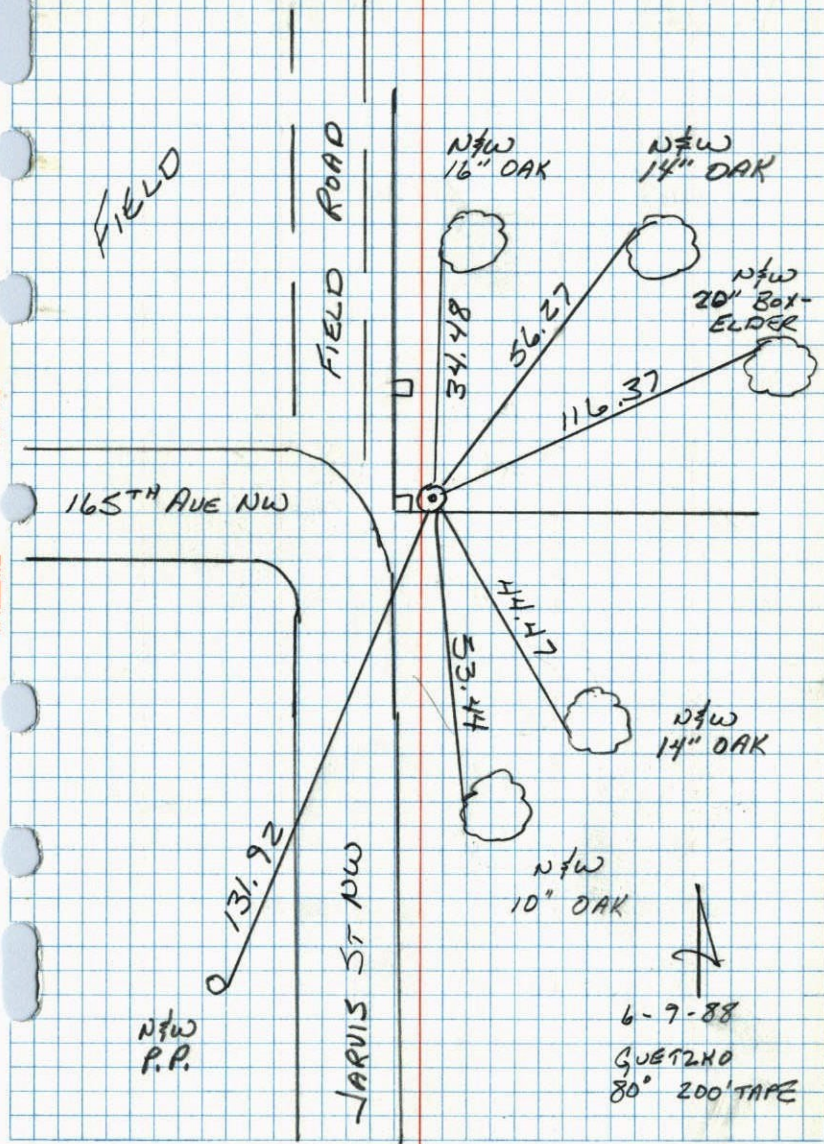 FIELD
FIELD ROAD
N&W
16" OAK
N&W
14" OAK
N&W
20" BOX-
ELDER
34.48
56.27
116.37
165TH AVE NW
44.47
53.44
N&W
14" OAK
N&W
10" OAK
131.92
JARVIS ST NW
N&W
P.P.
6-9-88
GUETZKO
80° 200' TAPE